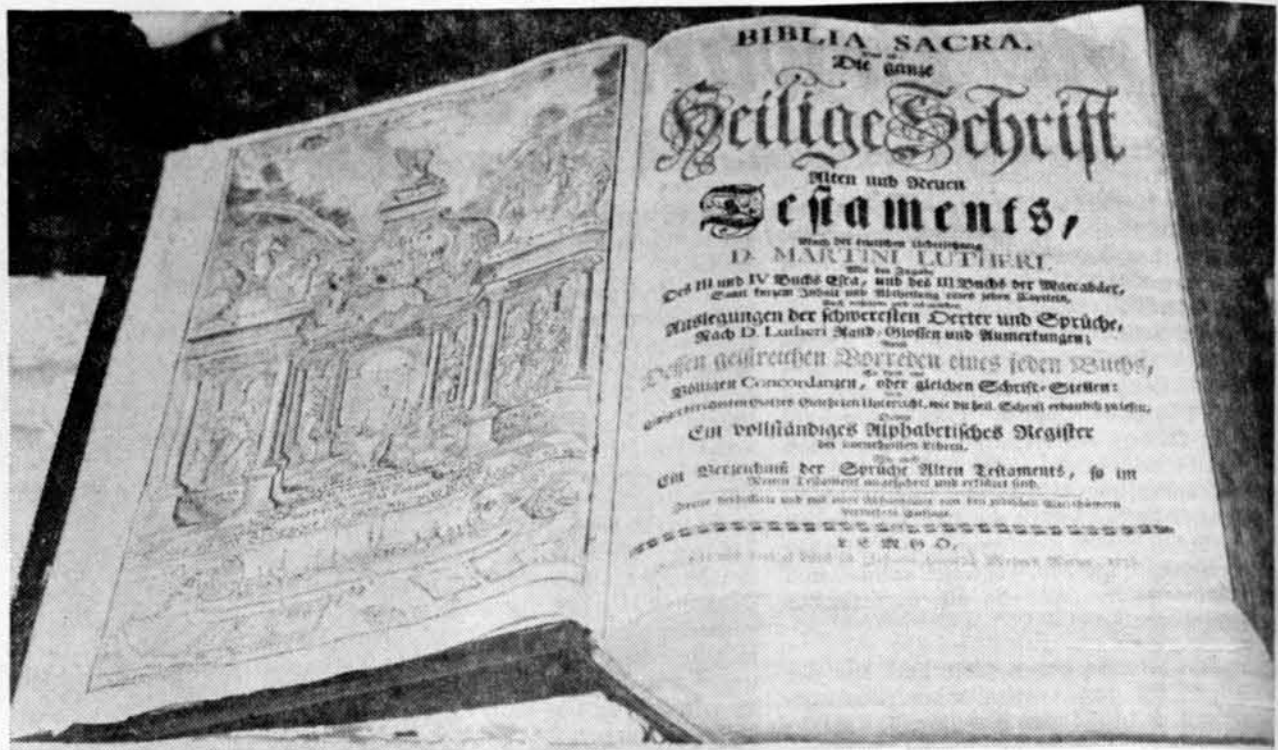 BIBLIA SACRA,
Die ganze
Heilige Schrift
Alten und Neuen
Testaments,
Nach der teutschen Uebersetzung
D. MARTINI LUTHERI.
Mit den Zugabe
Des III und IV Buchs Esra, und des III Buchs der Maccabäer,
Samt kurzem Inhalt und Abtheilung eines jeden Capitels,
Auslegungen der schweresten Oerter und Sprüche,
Nach D. Lutheri Rand-Glossen und Anmerkungen;
Dessen geistreichen Vorreden eines jeden Buchs,
Völligen Concordanzen, oder gleichen Schrift-Stellen:
berühmten Gottes-Gelehrten Unterricht, wie die heil. Schrift erbaulich zu lesen,
Ein vollständiges Alphabetisches Register
der vornehmsten Lehren,
Ein Verzeichniß der Sprüche Alten Testaments, so im
Neuen Testament angeführet und erkläret sind.
LEMGO,